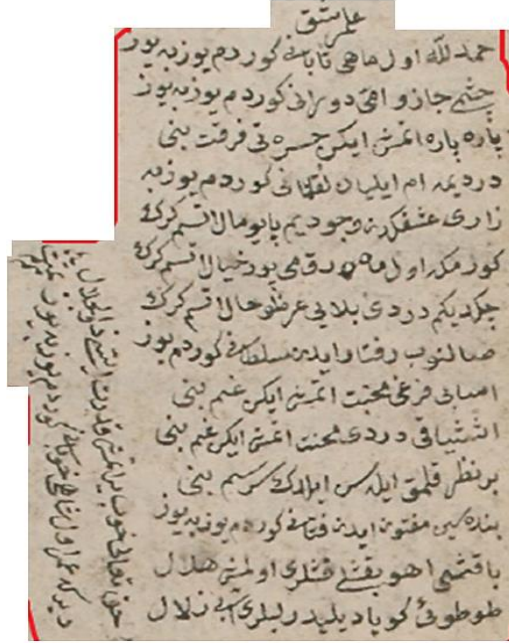 علمر عشق
حمد لله اول ماهی تابانی کوردم یوز به یوز
چشمی جاز و افتی دورانی کوردم یوز به یوز
پاره پاره اتمش ایکن حسرتی فرقت بنی
دردیمه ام ایلیان لقمانی کوردم یوز به
زاری عشقکدن وجودیم پایومال اتسم کرک
کورمکه اول ماه رقمی یوز خیال اتسم کرک
چکدیکم دردی بلایی عرظو حال اتسم کرک
صالنوب رفتار ایدن سلطانی کوردم یوز
محنت اتمش ایکن غم بنی
اشتیاقی دردی محنت اتمش ایکن غم بنی
بر نظر قلمق ایله سن ایلدك بنی
بنده سین مفتون ایدن فتانی کوردم یوز به یوز
باقشی اهو بقشلی قشلری اولمش هلال
طوطوئی کویا دیلیدر لبلری زلال
حق تعالی خوب یراتمش قدرت ذو الجلال
دیر که عمر اول شاهی خوبانی کوردم یوز به یوز